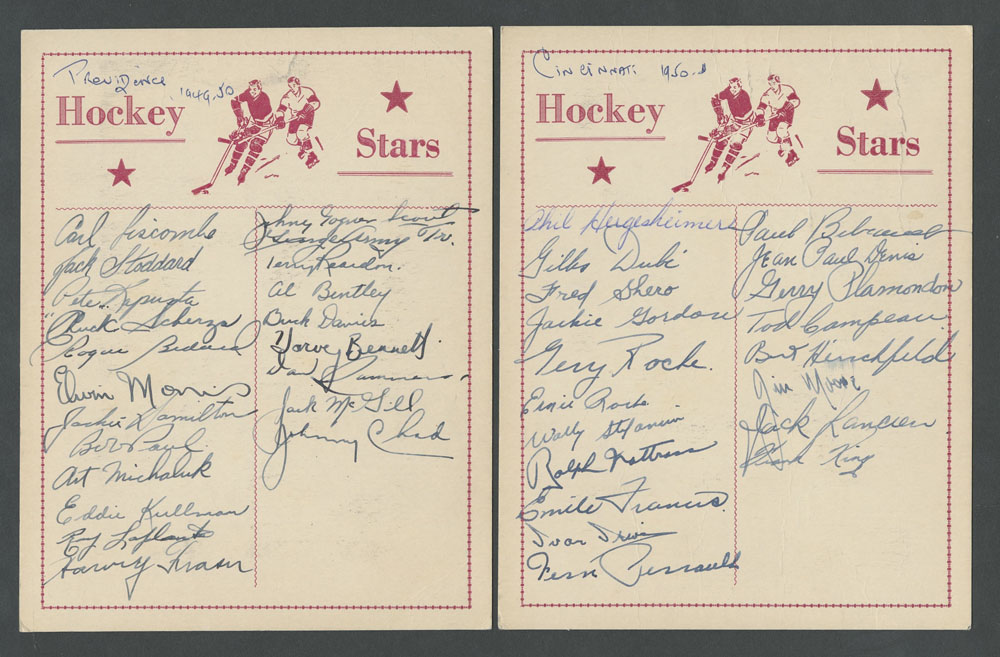 Providence 1949.50
Hockey
Stars
Carl Liscombe
Jack Stoddard
Pete Kapusta
"Chuck" Scherza
Roger Bedard
Elwin Morris
Jackie Hamilton
Bob Paul
Art Michaluk
Eddie Kullman
Roy Laplante
Harvey Fraser
Johnny Gagnon Scout
Terry Reardon.
Al Bentley
Buck Davies
Harvey Bennett.
Jack McGill
Johnny Chad
Cincinnati 1950
Hockey
Stars
Phil Hergesheimer
Gilles Dubé
Fred Shero
Jackie Gordon
Gerry Roche.
Ernie Roche
Wally Stefaniw
Ralph Nattrass
Emile Francis.
Ivan Irwin
Fern Perreault
Paul Bibeault
Jean Paul Denis
Gerry Plamondon
Tod Campeau
Bert Hirschfeld
Jim Moore
Jack Lancien
Frank King